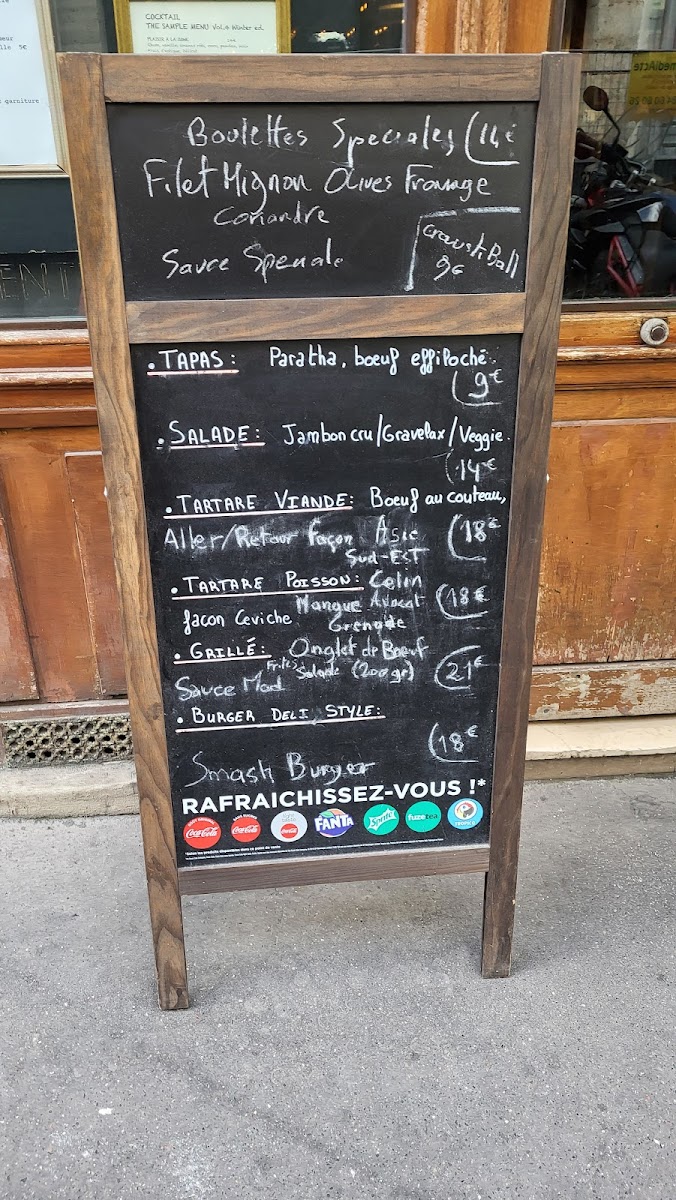 COCKTAIL
THE SAMPLE MENU Vol.4 Winter ed.
5€
garniture
Boulettes Speciales (14€
Filet Mignon Olives Fromage
Coriandre
Sauce Speciale
Croust.Ball
9€
. TAPAS : Paratha, bœuf effiloché.
(9€
. SALADE : Jambon cru/Gravelax/Veggie.
(14€
. TARTARE VIANDE : Boeuf au couteau,
Aller/Retour façon Asie (18€
SUD-EST
. TARTARE POISSON : Colin
façon Ceviche Mangue Avocat (18€
Grenade
. GRILLÉ : Onglet de Bœuf
Frites Salade (200gr) (21€
Sauce Mad
. BURGER DELI STYLE :
(18€
Smash Burger
RAFRAICHISSEZ-VOUS !*
Coca-Cola Coca-Cola Coca-Cola FANTA Sprite fuzetea TROPICO